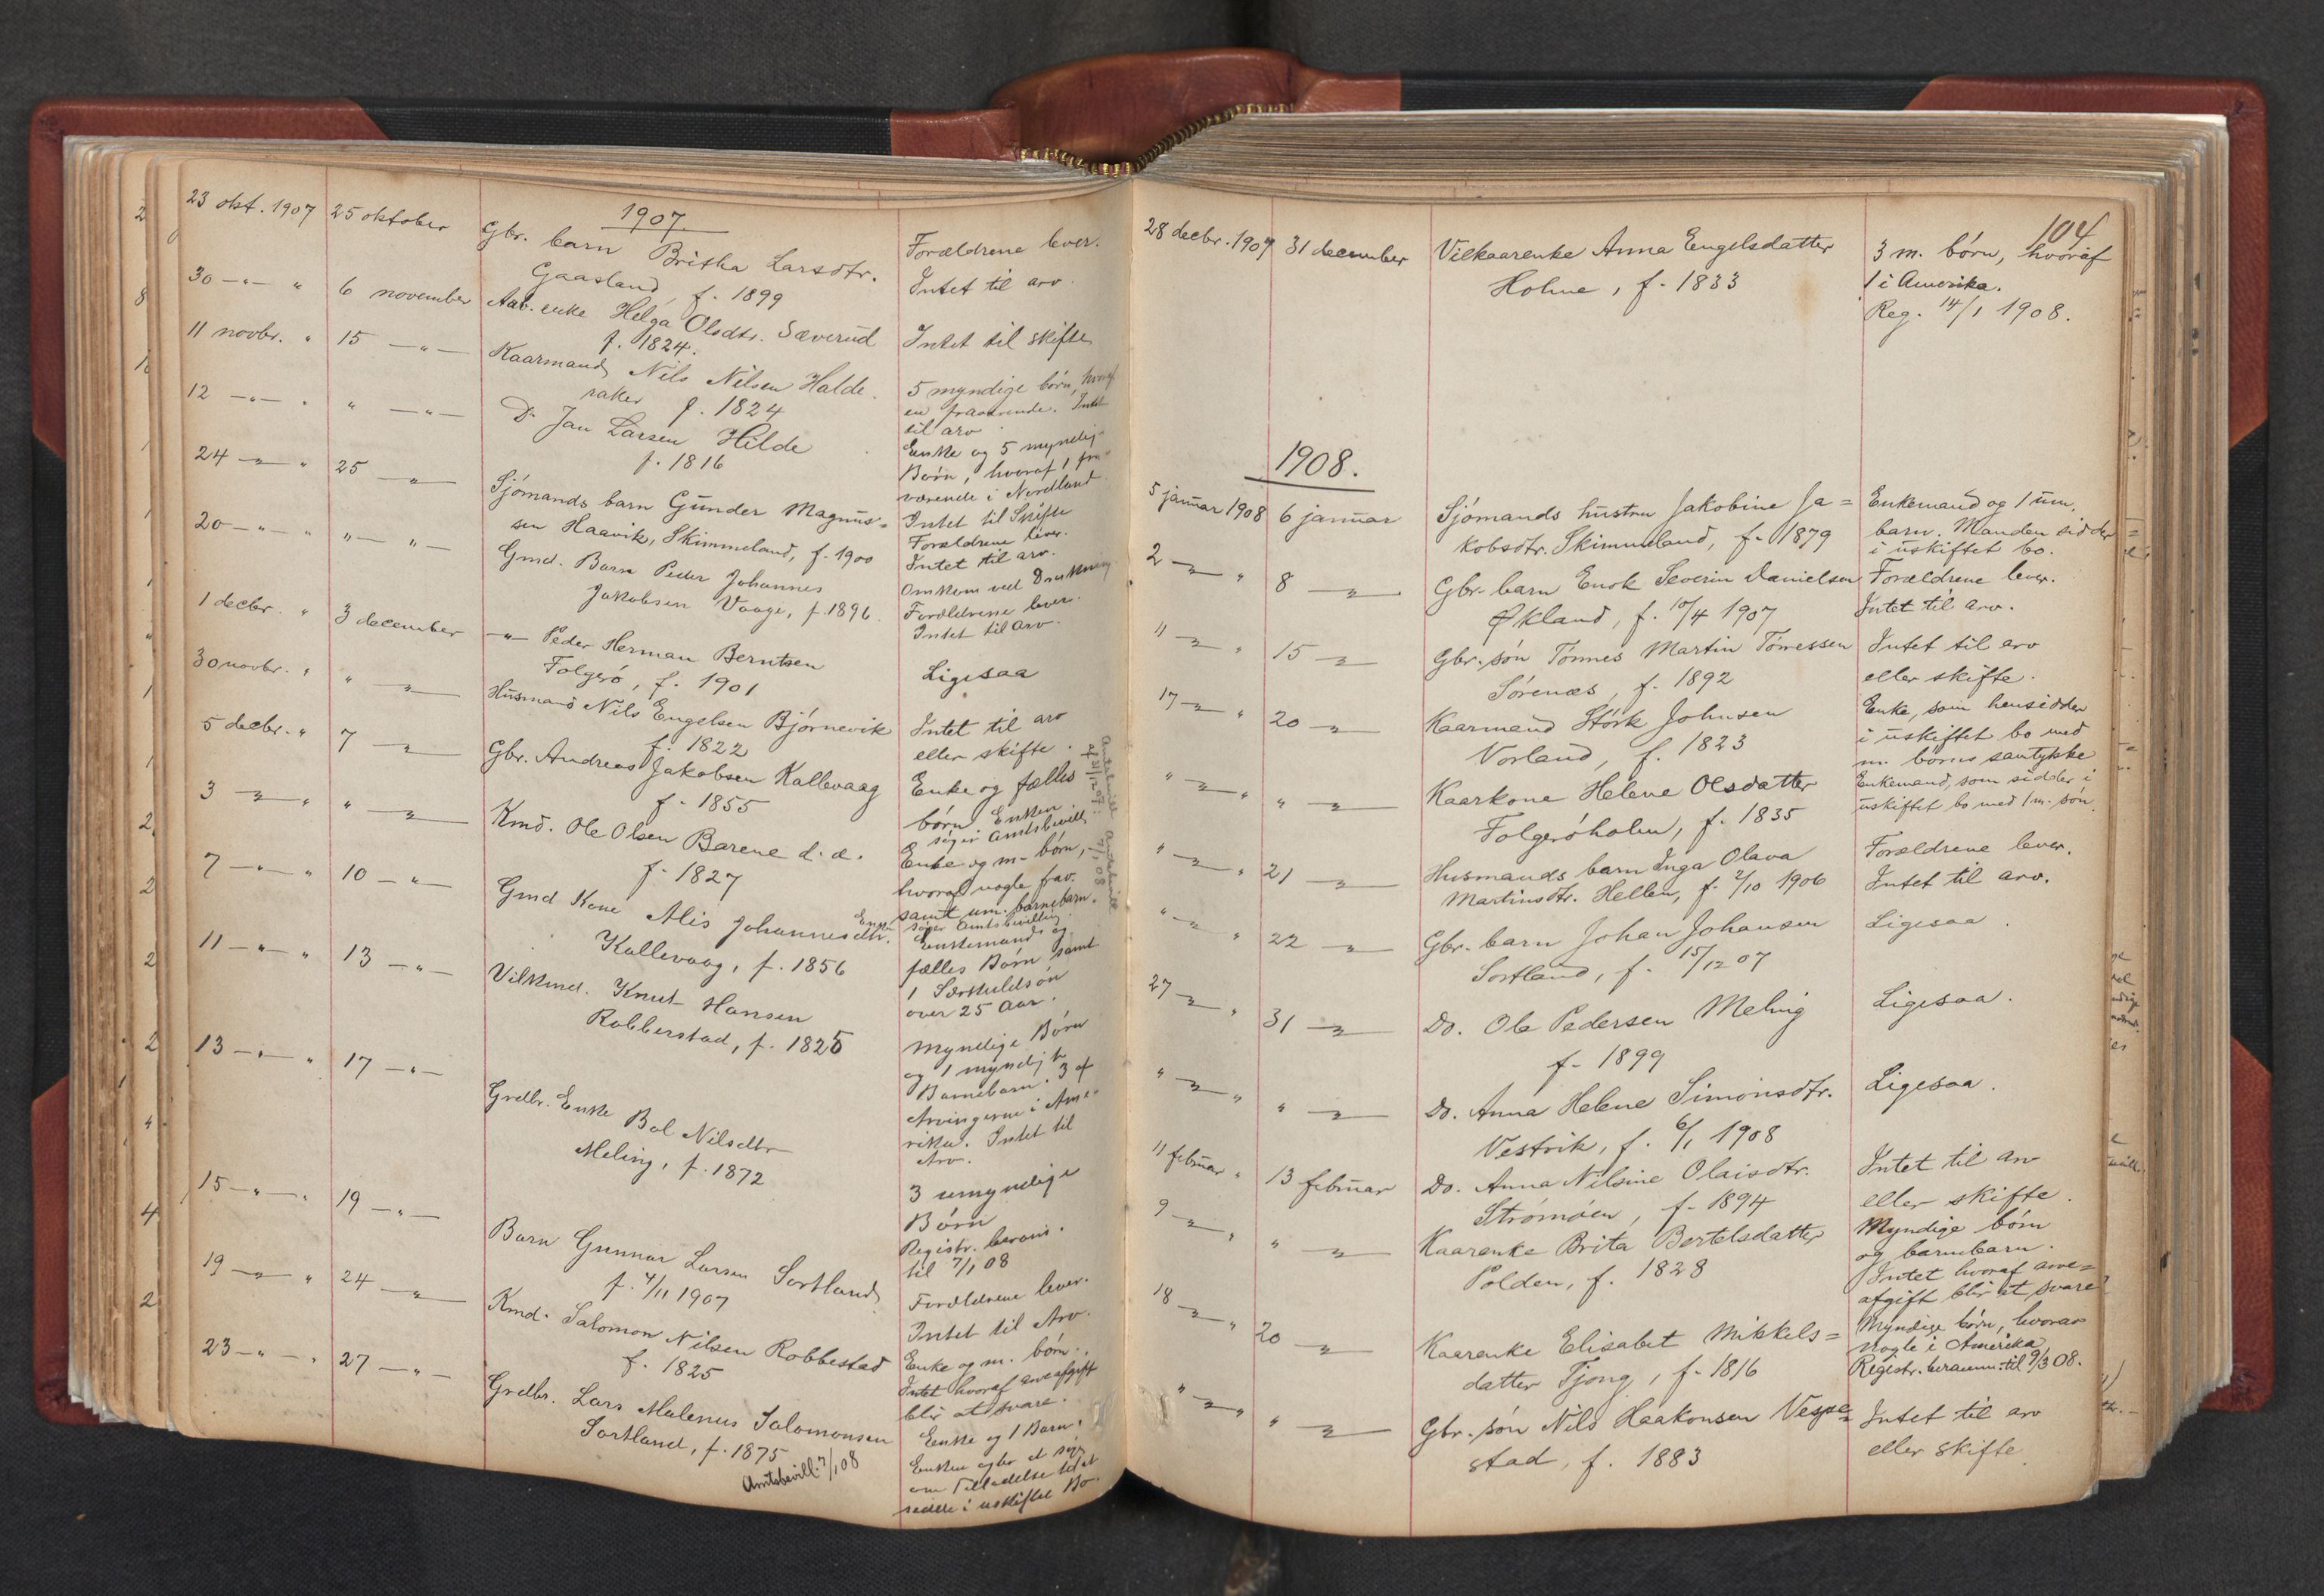 1907
23 okt. 1907 25 oktober Gbr. barn Britha Larsdtr. Forældrene lever.
Gaasland, f. 1899 Intet til arv.
30 -"- " 6 november Aab. enke Helga Olsdtr. Sæverud Intet til skifte
f. 1824.
11 novbr. " 15 -"- Kaarmand Nils Nilsen Halde- 5 myndige børn, hvoraf
raker f. 1824 en fraværende. Intet
til arv
12 -"- " " -"- Do Jan Larsen Hilde Enke og 5 myndig
f. 1816 Børn, hvoraf 1 fra-
værende i Nordland
Intet til Skifte
24 -"- " 25 -"- Sjømands barn Gunder Magnus= Forældrene lever.
sen Haavik, Skimmeland, f. 1900 Intet til arv.
20 -"- " " -"- Gmd. Barn Peder Johannes Omkom ved Drukning
Jakobsen Vaage, f. 1896. Forældrene lever.
Intet til Arv.
1 decbr. " 3 december -"- Peder Herman Berntsen Ligesaa
Folgerø, f. 1901
30 novbr. " " -"- Husmand Nils Engelsen Bjørnevik Intet til arv
f. 1822 eller skifte.
5 decbr. " 7 -"- Gbr. Andreas Jakobsen Kallevaag Enke og fælles
f. 1855 børn Enken
søger Amtsbevill.
3 -"- " " -"- Kmd. Ole Olsen Barene d. æ. Enke og m. børn,
f. 1827 hvoraf nogle frav.
samt um. barnebarn.
Enken søger Amtsbevilling.
7 -"- " 10 -"- Gmd Kone Alis Johannesdtr. Enkemand og
Kallevaag, f. 1856 fælles Børn samt
1 Særkuldsøn
over 25 Aar.
11 -"- " 13 -"- Vilkmd. Knut Hansen Myndige Børn
Robberstad, f. 1825 og 1 myndigt
Barnebarn. 3 af
Arvingerne i Ame-
rika. Intet til
Arv.
13 -"- " 17 -"- Grdbr. Enke Bol Nilsdtr 3 umyndige
Meling, f. 1872 Børn
Registr. beram.
til 7/1 08
15 -"- " 19 -"- Barn Gunnar Larsen Sortland Forældrene lever.
f. 4/11 1907 Intet til Arv.
19 -"- " 24 -"- Kmd. Salomon Nilsen Robbestad Enke og m. børn.
f. 1825 Intet hvoraf arveafgift
blir at svare.
23 -"- " 27 -"- Grdbr. Lars Malenus Salomonsen Enke og 1 Barn.
Sortland, f. 1875 Enken agter at søge
Amtsbevill. 7/1 08 om Tilladelse til at
sidde i uskiftet Bo.
104
28 decbr. 1907 31 december Vilkaarenke Anna Engelsdatter 3 m. børn, hvoraf
Holme, f. 1833 1 i Amerika.
Reg. 14/1 1908.
1908.
5 januar 1908 6 januar Sjømands hustru Jakobine Ja= Enkemand og 1 um.
kobsdtr. Skimmeland, f. 1879 barn. Manden sidder
i uskiftet bo.
2 -"- " 8 -"- Gbr. barn Enok Severin Danielsen Forældrene lever.
Økland, f. 10/4 1907 Intet til arv.
11 -"- " 15 -"- Gbr. søn Tønnes Martin Tønnessen Intet til arv
Sørenæs, f. 1892 eller skifte.
17 -"- " 20 -"- Kaarmand Størk Johnsen Enke, som hensidder
Vorland, f. 1823 i uskiftet bo med
m. børns samtykke
" -"- " " -"- Kaarkone Helene Olsdatter Enkemand, som sidder i
Folgerøholm, f. 1835 uskiftet bo med 1 m. søn.
" -"- " 21 -"- Husmands barn Inga Olava Forældrene lever.
Martinsdtr. Hellen, f. 2/10 1906 Intet til arv.
" -"- " 22 -"- Gbr. barn Johan Johansen Ligesaa.
Sortland, f. 15/12 07
27 -"- " 31 -"- Do. Ole Pedersen Meling Ligesaa.
f. 1899
" -"- " " -"- Do. Anna Helene Simonsdtr. Ligesaa.
Vestvik, f. 6/1 1908
11 februar " 13 februar Do. Anna Nilsine Olaisdtr. Intet til arv
Strømøen, f. 1894 eller skifte.
9 -"- " " -"- Kaarenke Brita Bertelsdatter Myndige børn
Polden, f. 1828 og barnebarn.
Intet hvoraf arve=
afgift blir at svare
18 -"- " 20 -"- Kaarenke Elisabet Mikkels= Myndige børn, hvorav
datter Tjong, f. 1816 nogle i Amerika
Registr. beram. til 9/3 08.
" -"- " " -"- Gbr. søn Nils Haakonsen Vespe= Intet til arv
stad, f. 1883 eller skifte.